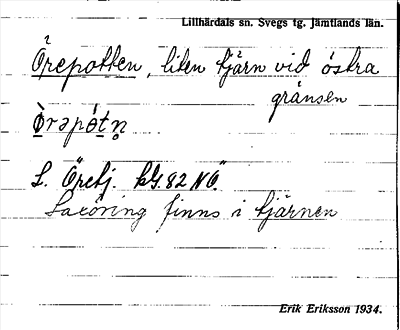 Lillhärdals sn. Svegs tg. Jämtlands län.
Örepotten, liten tjärn vid östra
gränsen
L. Öretj. kG. 82 NO.
Laxöring finns i tjärnen
Erik Eriksson 1934.